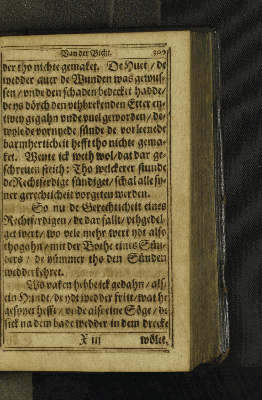 Van der Bicht.
der tho nichte gemaket. De Huet / de
wedder auer de Wunden was gewus-
sen / vnde den schaden bedecket hadde /
de ys dörch den vthbrekenden Etter en-
twey gegahn vnde vuel geworden / de-
wyle de vornyede sünde de vorleenede
barmherticheit hefft tho nichte gema-
ket. Wente ick weth wol / dat dar ge-
schreuen steith: Tho welckerer stunde
de Rechtferdige sündiget / schal alle sy-
ner gerechticheit vorgeten werden.
So nu de Gerechticheit eines
Rechtferdigen / de dar fallt / vthgedel-
get wert / wo vele mehr wert ydt also
thogahn / mit der Bothe eines Sün-
ders / de yümmer tho den Sünden
wedderkehret.
Wo vaken hebbe ick gedahn / als
ein Hundt / de ydt wedder fritt / wat he
gespyet hefft / vnde als eine Söge / de
sick na dem bade wedder in dem drecke
X iij
wölet